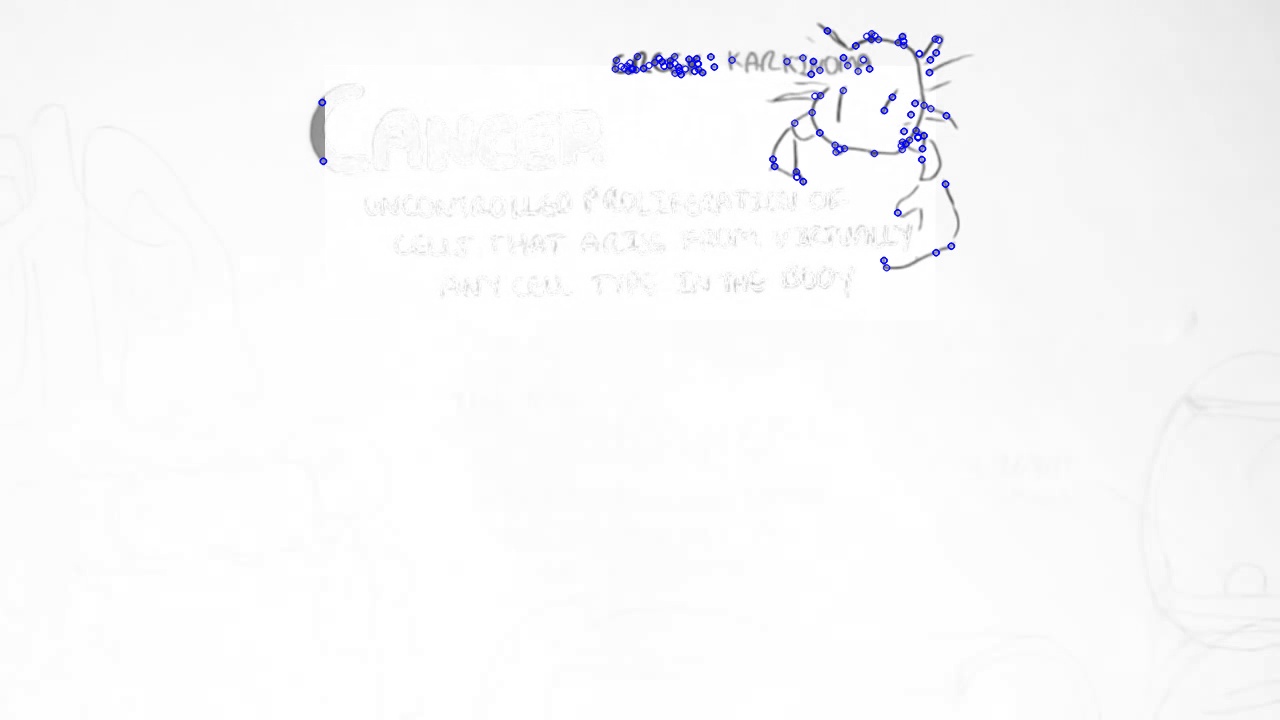 GREEK KARKINOMA
CANCER
UNCONTROLLED PROLIFERATION OF
CELLS THAT ARISE FROM VIRTUALLY
ANY CELL TYPE IN THE BODY